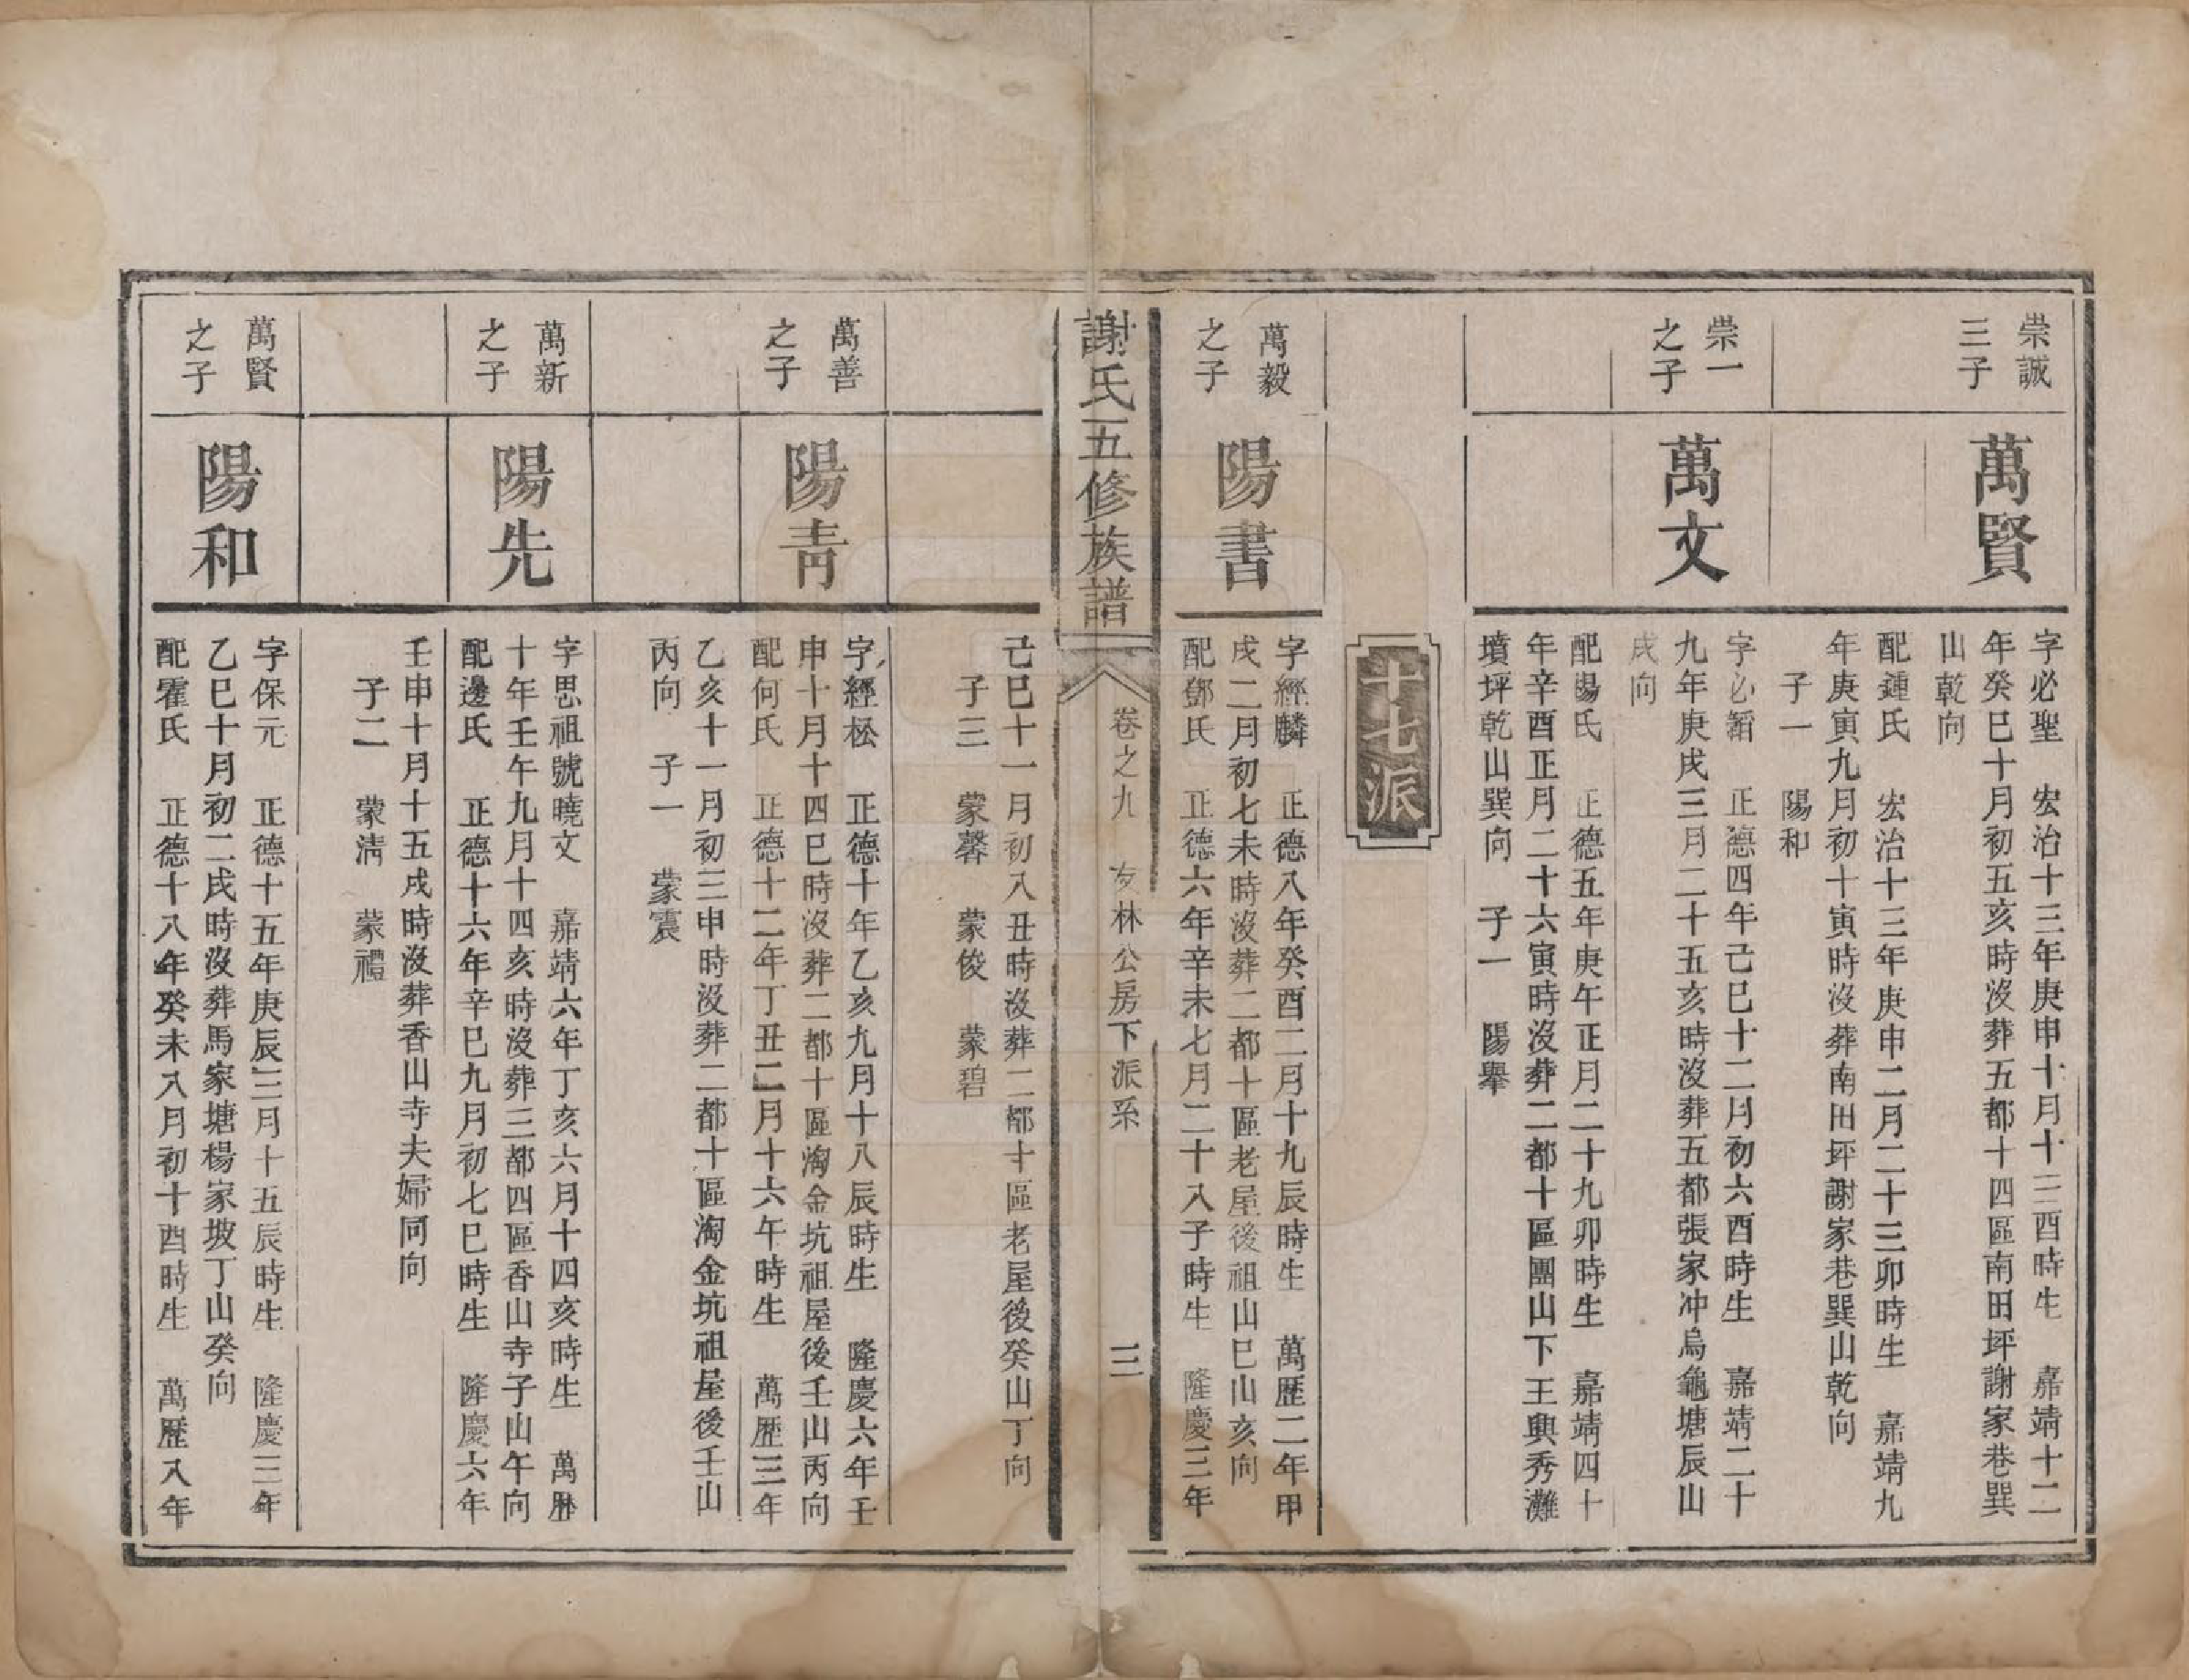 崇誠
三子
萬賢
字必聖　宏治十三年庚申十月十三酉時生　嘉靖十二
年癸巳十月初五亥時沒葬五都十四區南田坪謝家巷巽
山乾向
配鍾氏　宏治十三年庚申二月二十三卯時生　嘉靖九
年庚寅九月初十寅時沒葬南田坪謝家巷巽山乾向
子一　陽和
崇一
之子
萬文
字必韜　正德四年己巳十二月初六酉時生　嘉靖二十
九年庚戌三月二十五亥時沒葬五都張家冲烏龜塘辰山
戌向
配楊氏　正德五年庚午正月二十九卯時生　嘉靖四十
年辛酉正月二十六寅時沒葬二都十區團山下王興秀灘
墳坪乾山巽向　子一　陽舉
十七派
萬毅
之子
陽書
字經麟　正德八年癸酉二月十九辰時生　萬歷二年甲
戌二月初七未時沒葬二都十區老屋後祖山巳山亥向
配鄧氏　正德六年辛未七月二十八子時生　隆慶三年
謝氏五修族譜
卷之九　友林公房下派系　三
己巳十一月初八丑時沒葬二都十區老屋後癸山丁向
子三　蒙馨　蒙俊　蒙碧
萬善
之子
陽青
字經松　正德十年乙亥九月十八辰時生　隆慶六年壬
申十月十四巳時沒葬二都十區淘金坑祖屋後壬山丙向
配何氏　正德十二年丁丑二月十六午時生　萬歷三年
乙亥十一月初三申時沒葬二都十區淘金坑祖屋後壬山
丙向　子一　蒙震
萬新
之子
陽先
字思祖號曉文　嘉靖六年丁亥六月十四亥時生　萬歷
十年壬午九月十四亥時沒葬三都四區香山寺子山午向
配邊氏　正德十六年辛巳九月初七巳時生　隆慶六年
壬申十月十五戌時沒葬香山寺夫婦同向
子二　蒙清　蒙禮
萬賢
之子
陽和
字保元　正德十五年庚辰三月十五辰時生　隆慶三年
乙巳十月初二戌時沒葬馬家塘楊家坡丁山癸向
配霍氏　正德十八年癸未八月初十酉時生　萬歷八年